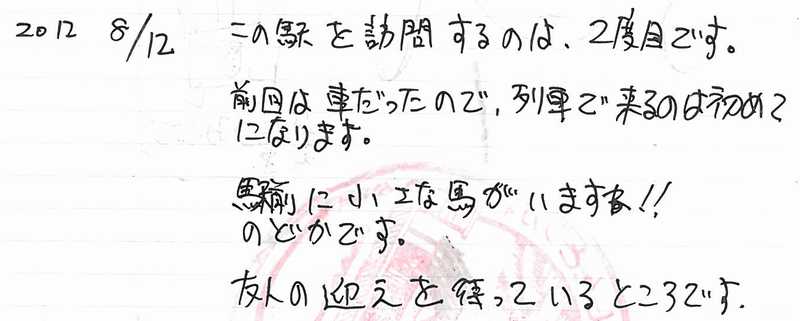 2012 8/12 この駅を訪問するのは、2度目です。
前回は車だったので、列車で来るのは初めて
になります。
駅前に小さな馬がいますね!!
のどかです。
友人の迎えを待っているところです.